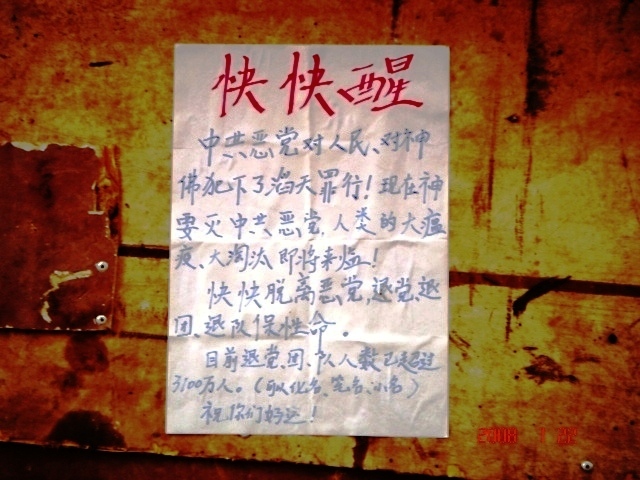 快快醒
中共恶党对人民、对神
佛犯下了滔天罪行！现在神
要灭中共恶党，人类的大瘟
疫、大淘汰即将来临！
快快脱离恶党，退党、退
团、退队保性命。
目前退党、团、队人数已超过
3100万人。（可以化名、笔名、小名）
祝你们好运！
2008